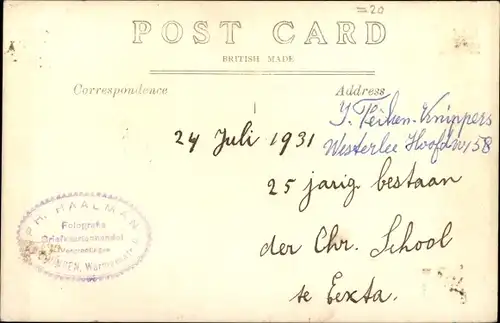 =20
POST CARD
BRITISH MADE
Correspondence
Address
J. Teiken-Knippers
Westerlee Hoofdw 158
24 Juli 1931
25 jarig bestaan
der Chr. School
te Eexta.
PH. HAALMAN
Fotografie
Briefkaartenhandel
Vergrootingen